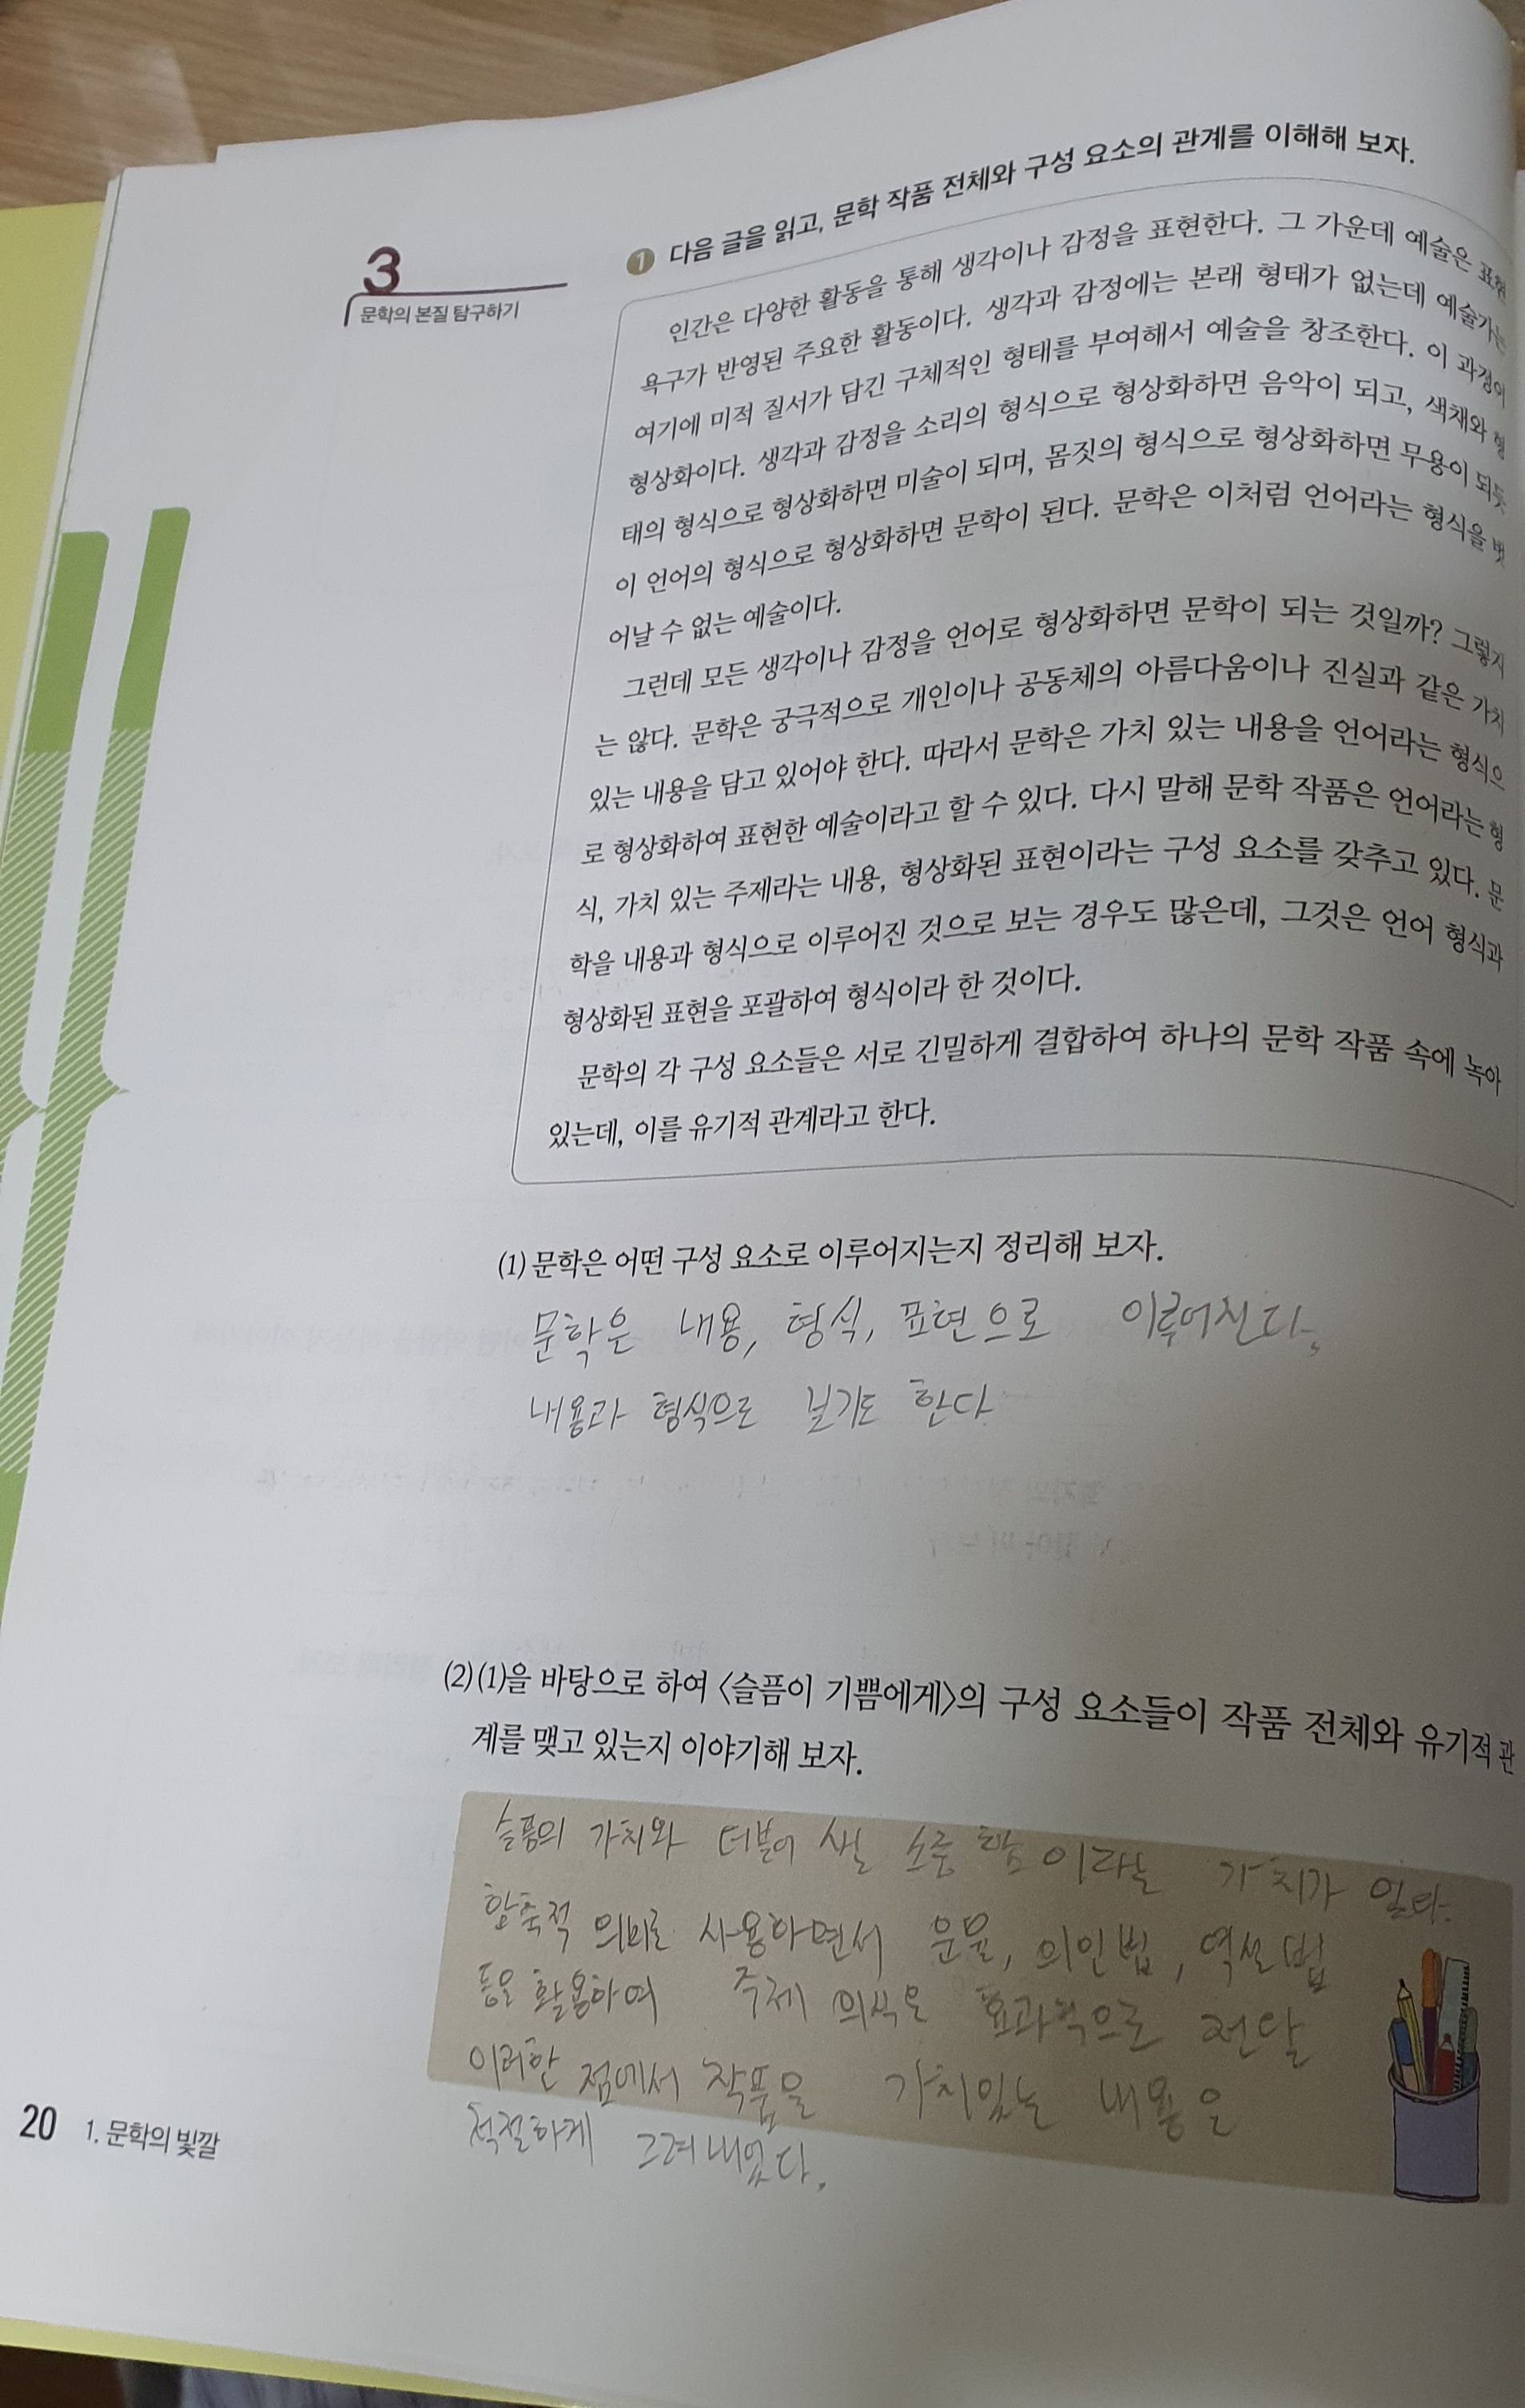 3
문학의 본질 탐구하기
1 다음 글을 읽고, 문학 작품 전체와 구성 요소의 관계를 이해해 보자.
인간은 다양한 활동을 통해 생각이나 감정을 표현한다. 그 가운데 예술은 표현
욕구가 반영된 주요한 활동이다. 생각과 감정에는 본래 형태가 없는데 예술가는
여기에 미적 질서가 담긴 구체적인 형태를 부여해서 예술을 창조한다. 이 과정이
형상화이다. 생각과 감정을 소리의 형식으로 형상화하면 음악이 되고, 색채와 형
태의 형식으로 형상화하면 미술이 되며, 몸짓의 형식으로 형상화하면 무용이 되듯
이 언어의 형식으로 형상화하면 문학이 된다. 문학은 이처럼 언어라는 형식을 벗
어날 수 없는 예술이다.
그런데 모든 생각이나 감정을 언어로 형상화하면 문학이 되는 것일까? 그렇지
는 않다. 문학은 궁극적으로 개인이나 공동체의 아름다움이나 진실과 같은 가치
있는 내용을 담고 있어야 한다. 따라서 문학은 가치 있는 내용을 언어라는 형식으
로 형상화하여 표현한 예술이라고 할 수 있다. 다시 말해 문학 작품은 언어라는 형
식, 가치 있는 주제라는 내용, 형상화된 표현이라는 구성 요소를 갖추고 있다. 문
학을 내용과 형식으로 이루어진 것으로 보는 경우도 많은데, 그것은 언어 형식과
형상화된 표현을 포괄하여 형식이라 한 것이다.
문학의 각 구성 요소들은 서로 긴밀하게 결합하여 하나의 문학 작품 속에 녹아
있는데, 이를 유기적 관계라고 한다.
(1) 문학은 어떤 구성 요소로 이루어지는지 정리해 보자.
문학은 내용, 형식, 표현으로 이루어진다,
내용과 형식으로 보기도 한다
(2) (1)을 바탕으로 하여 〈슬픔이 기쁨에게〉의 구성 요소들이 작품 전체와 유기적 관
계를 맺고 있는지 이야기해 보자.
슬픔의 가치와 더불어 이라는 가치가 있다.
함축적 의미로 사용하면서 운율, 의인법, 역설법
등을 활용하여 주제 의식을 효과적으로 전달
이러한 점에서 작품을 가치있는 내용을
적절하게 그려내었다.
20 1. 문학의 빛깔